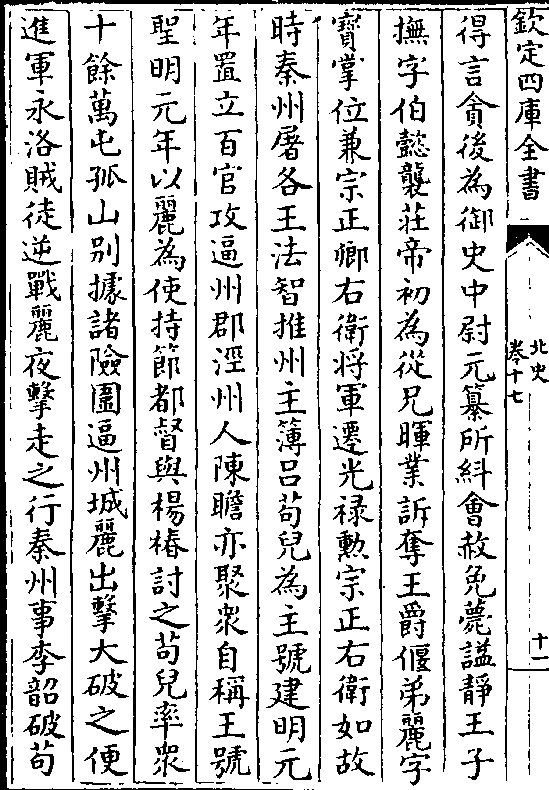 欽定四庫全書
北史
卷十七
十二
得言貪後為御史中尉元纂所糾會赦免薨諡靜王子
撫字伯懿襲莊帝初為從兄暉業訴奪王爵偃弟麗字
寶掌位兼宗正卿右衛將軍遷光祿勲宗正右衛如故
時秦州屠各王法智推州主簿呂茍兒為主號建明元
年置立百官攻逼州郡涇州人陳瞻亦聚衆自稱王號
聖明元年以麗為使持節都督與楊椿討之茍兒率衆
十餘萬屯孤山别據諸險圍逼州城麗出擊大破之便
進軍永洛賊徒逆戰麗夜擊走之行秦州事李韶破茍